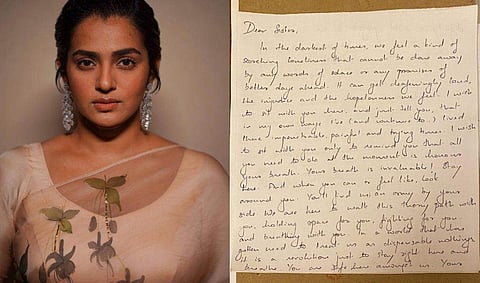 Dear Sister,
In the darkest of times, we feel a kind of
scorching loneliness that cannot be done away
by any words of solace or any promises of
better days ahead. It can get deafeningly loud,
the injustice and the hopelessness we feel. I wish
to sit with you here and just tell you that
in my own ways I've (and continue to) lived
painful and trying times. I wish
to sit with you only to remind you that all
you need to do at the moment is honour
your breath. Your breath is invaluable! Stay
here. And when you can or feel like, look
around you. You'll find an army by your
side. We are here to walk this thorny path with
you, holding space for you, fighting for you
and breathing with you. In a world that
gotten used to treat us as disposable nothings
it is a revolution just to stay right here and
breathe. You are safe here amongst us. Yours